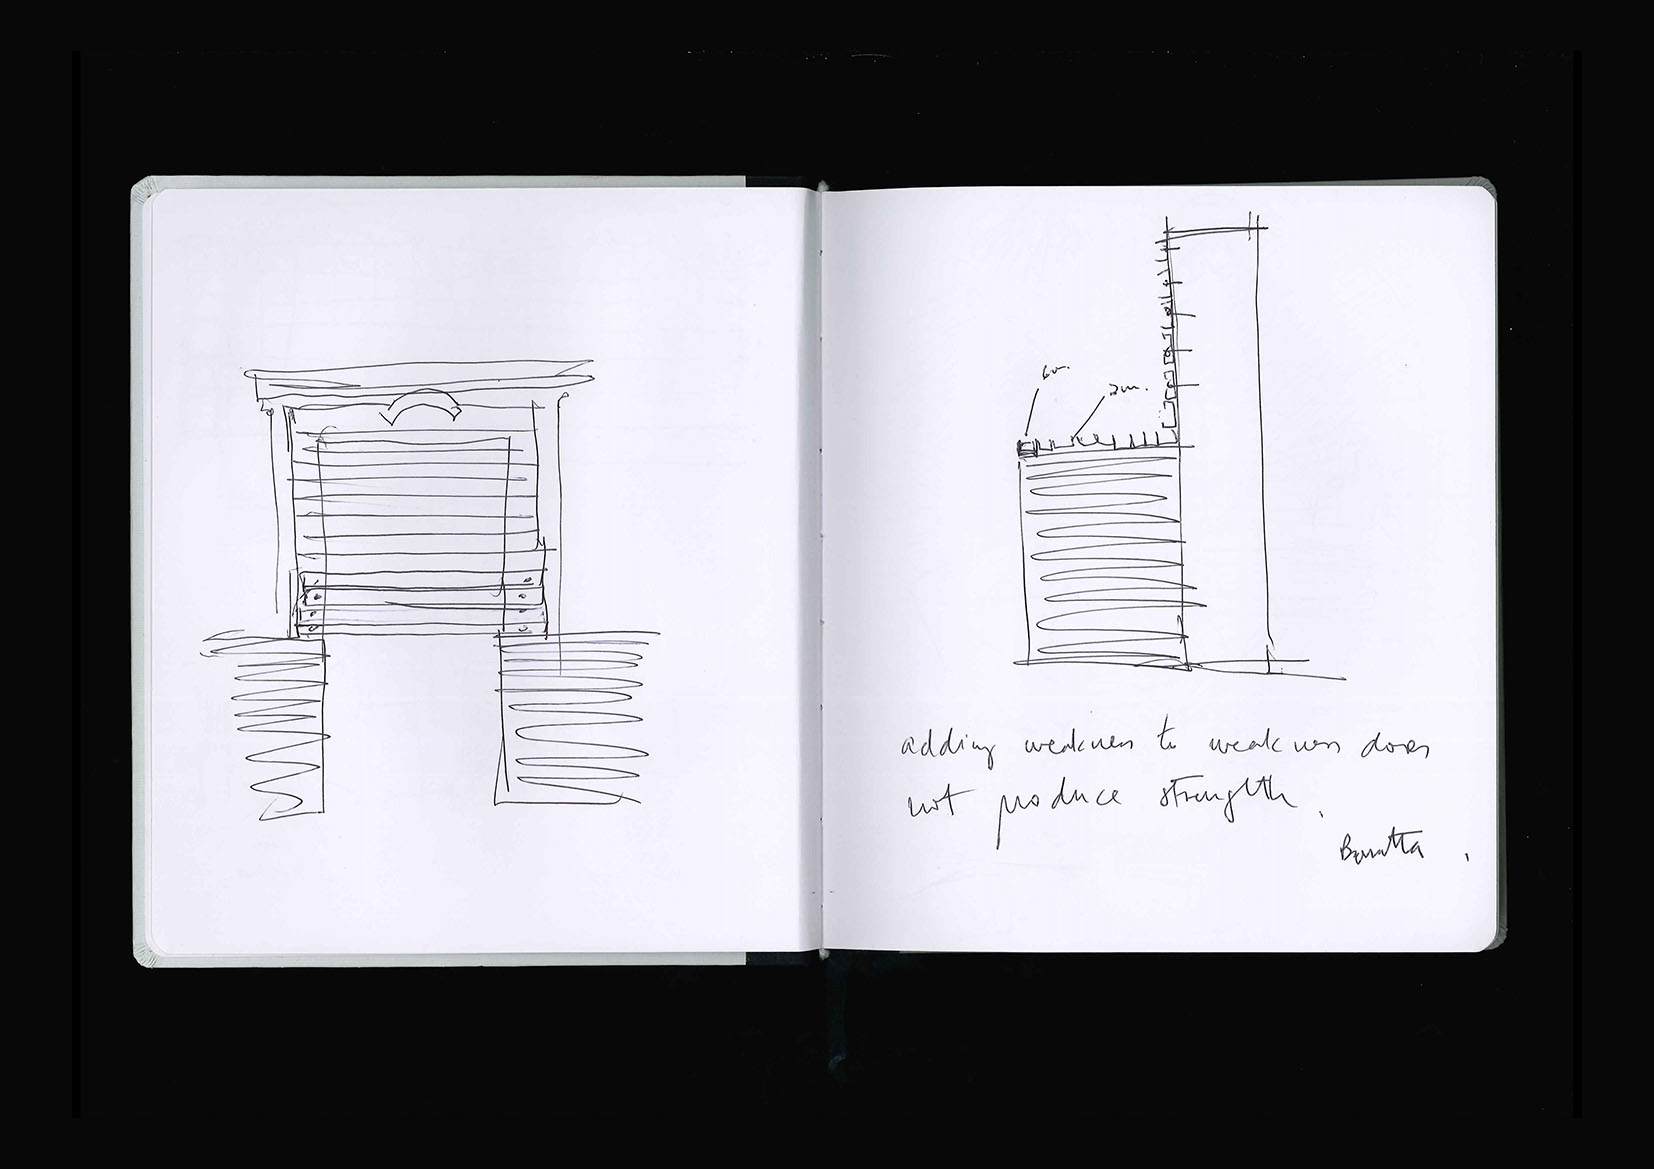 adding weakness to weakness does
not produce strength.
Baratta